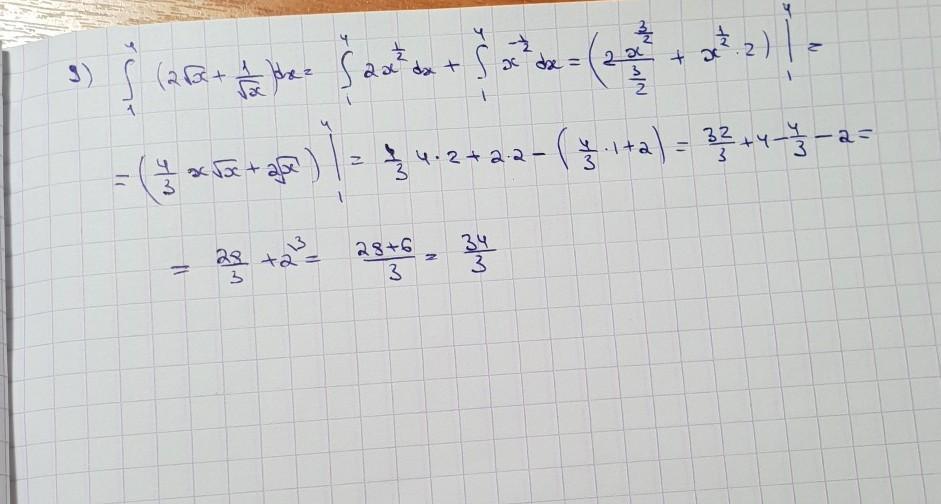 9) ∫₁⁴ (2√x + 1/√x)dx = ∫₁⁴ 2x^(1/2) dx + ∫₁⁴ x^(-1/2) dx = (2 x^(3/2)/(3/2) + x^(1/2) · 2) |₁⁴ =
= (4/3 x√x + 2√x) |₁⁴ = 4/3 4 · 2 + 2 · 2 - (4/3 · 1 + 2) = 32/3 + 4 - 4/3 - 2 =
= 28/3 + 2^(\3) = (28+6)/3 = 34/3